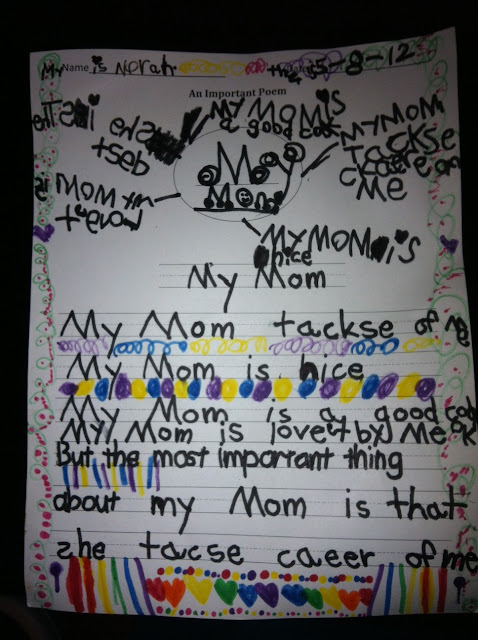 My Name is Norah. the 5-8-12
An Important Poem
My MoM is
a good cok
she is The
best
MY MOM
TaCKSe
Ckaere on
Me
My MOM is
loveyt
May
Mom
MY MOM is
nice
My Mom
My Mom tackse of me
My Mom is nice
My Mom is a good cok
My Mom is loveyt by Me
But the most important thing
about my Mom is that
she tacse caeer of me